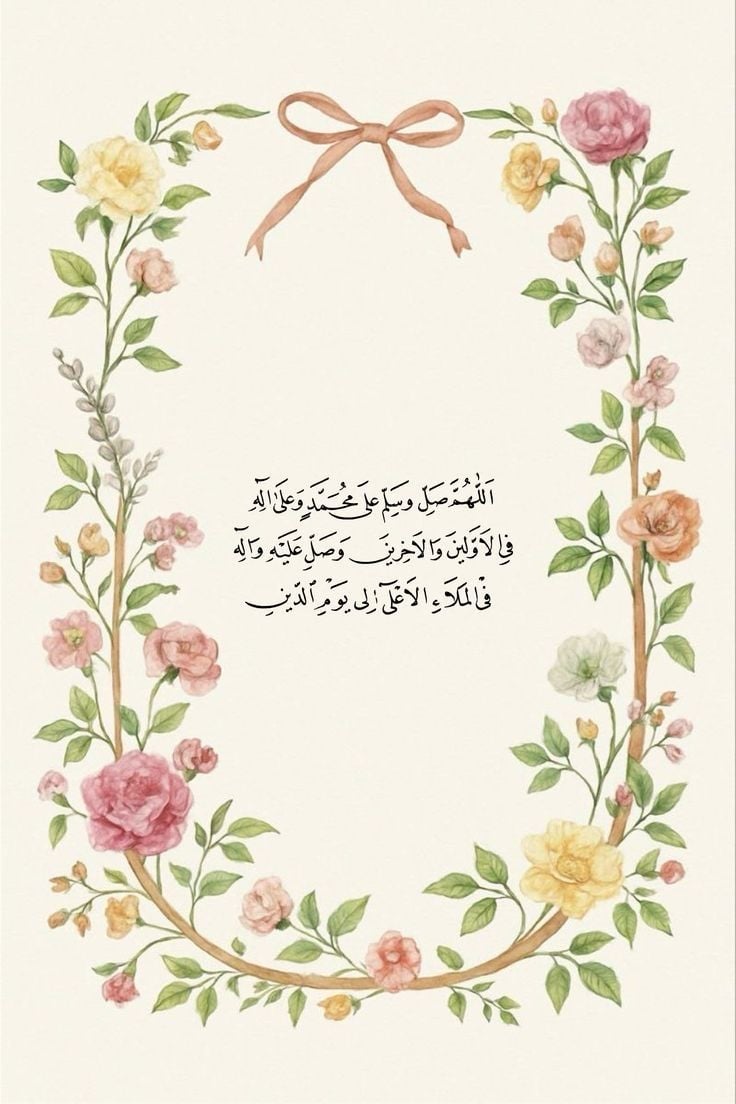 اَللّٰهُمَّ صَلِّ وَسَلِّمْ عَلَى مُحَمَّدٍ وَعَلَىٰ اٰلِهِ
فِي الْاَوَّلِينَ وَالْاٰخِرِينَ وَصَلِّ عَلَيْهِ وَاٰلِهِ
فِي الْمَلَاءِ الْاَعْلَىٰ اِلَى يَوْمِ الدِّينِ